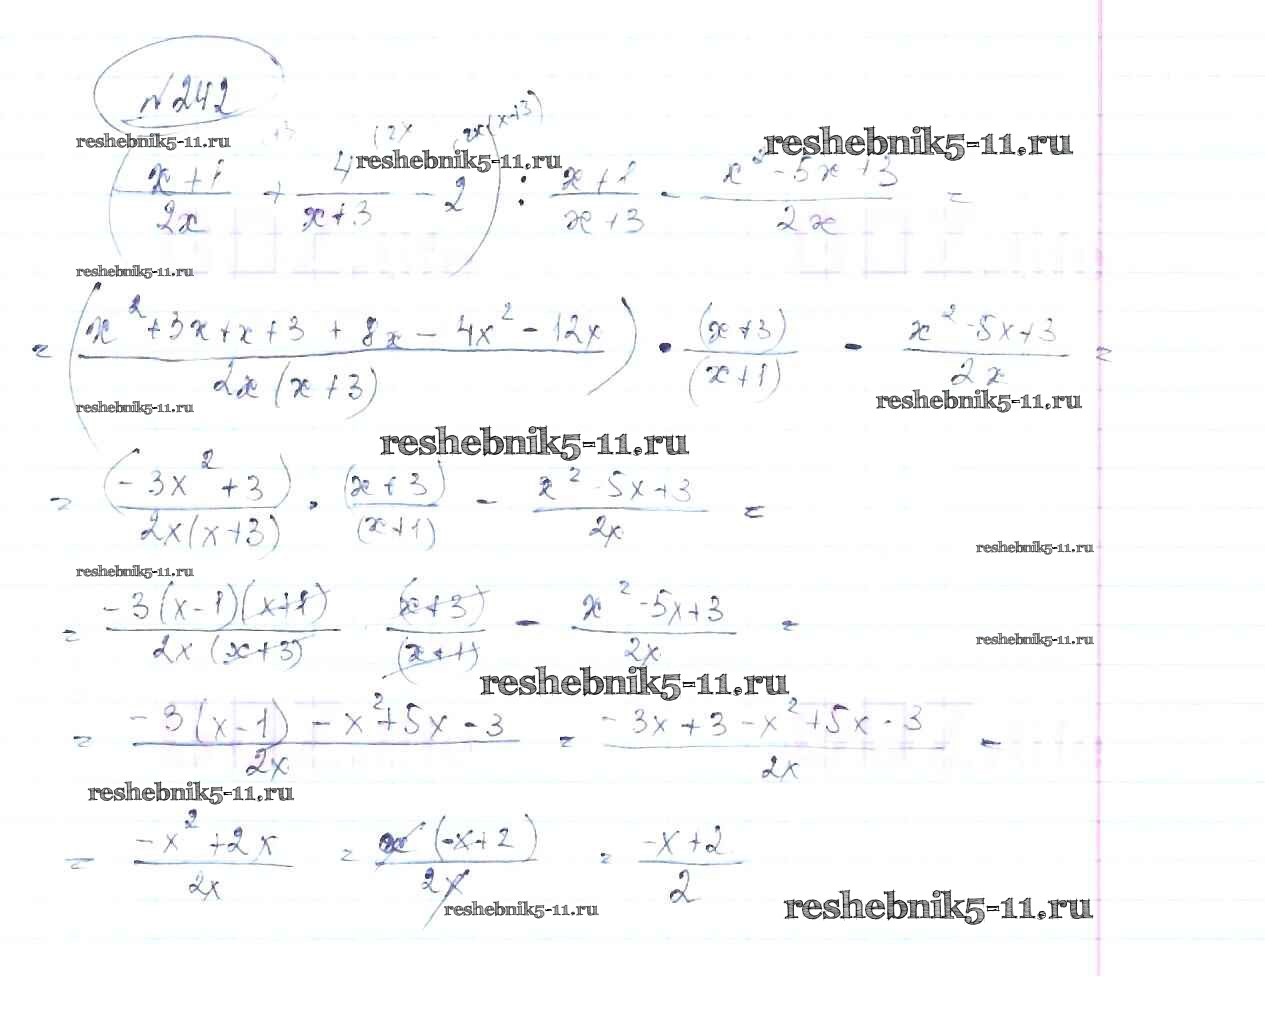 №242
reshebnik5-11.ru +3 (2x 2x(x+3) reshebnik5-11.ru
reshebnik5-11.ru
((x+1)/(2x) + 4/(x+3) - 2) : (x+1)/(x+3) - (x²-5x+3)/(2x) =
reshebnik5-11.ru
= ((x²+3x+x+3+8x-4x²-12x)/(2x(x+3))) · (x+3)/(x+1) - (x²-5x+3)/(2x) =
reshebnik5-11.ru reshebnik5-11.ru
reshebnik5-11.ru
= (-3x²+3)/(2x(x+3)) · (x+3)/(x+1) - (x²-5x+3)/(2x) =
reshebnik5-11.ru
reshebnik5-11.ru
= (-3(x-1)(x+1))/(2x(x+3)) (x+3)/(x+1) - (x²-5x+3)/(2x) =
reshebnik5-11.ru
reshebnik5-11.ru
= (-3(x-1)-x²+5x-3)/(2x) = (-3x+3-x²+5x-3)/(2x) =
reshebnik5-11.ru
= (-x²+2x)/(2x) = (x(-x+2))/(2x) = (-x+2)/2
reshebnik5-11.ru reshebnik5-11.ru